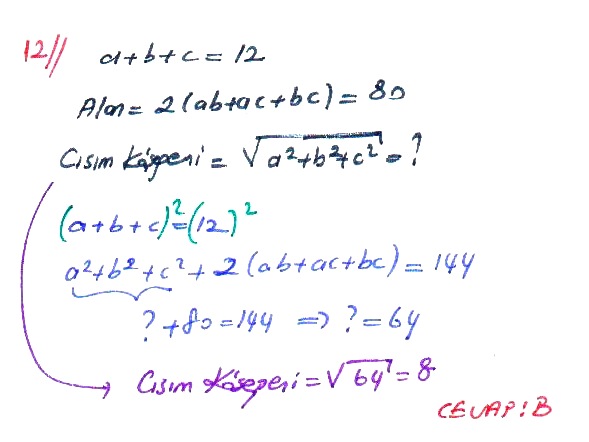 12// a+b+c=12
Alan=2(ab+ac+bc)=80
Cisim Köşegeni=√a²+b²+c²=?
(a+b+c)²=(12)²
a²+b²+c²+2(ab+ac+bc)=144
?+80=144 => ?=64
Cisim Köşegeni=√64=8
CEVAP:B